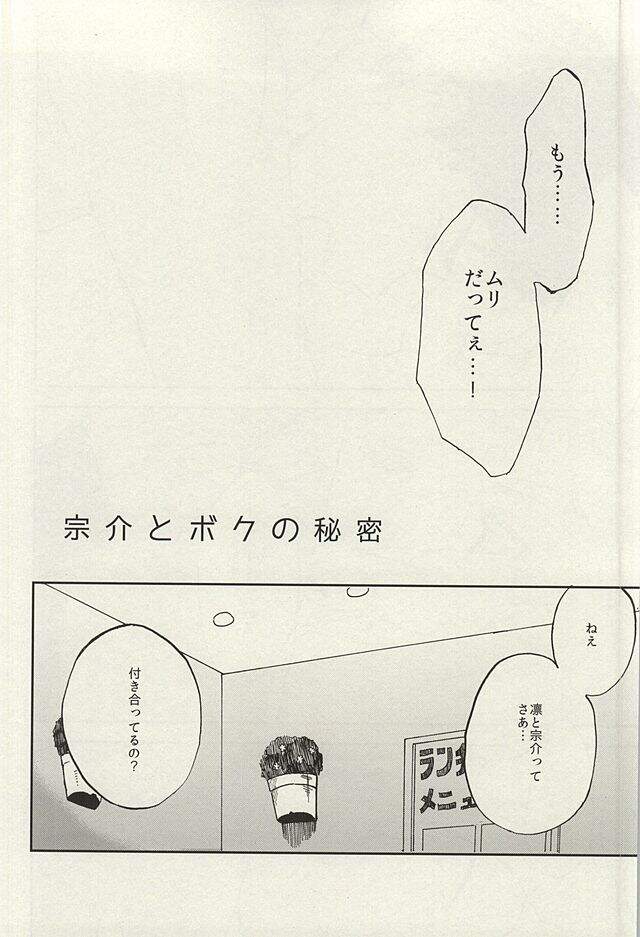 もう……
ムリ
だってぇ…！
宗介とボクの秘密
ねえ
凛と宗介って
さぁ…
付き合ってるの？
メニュ